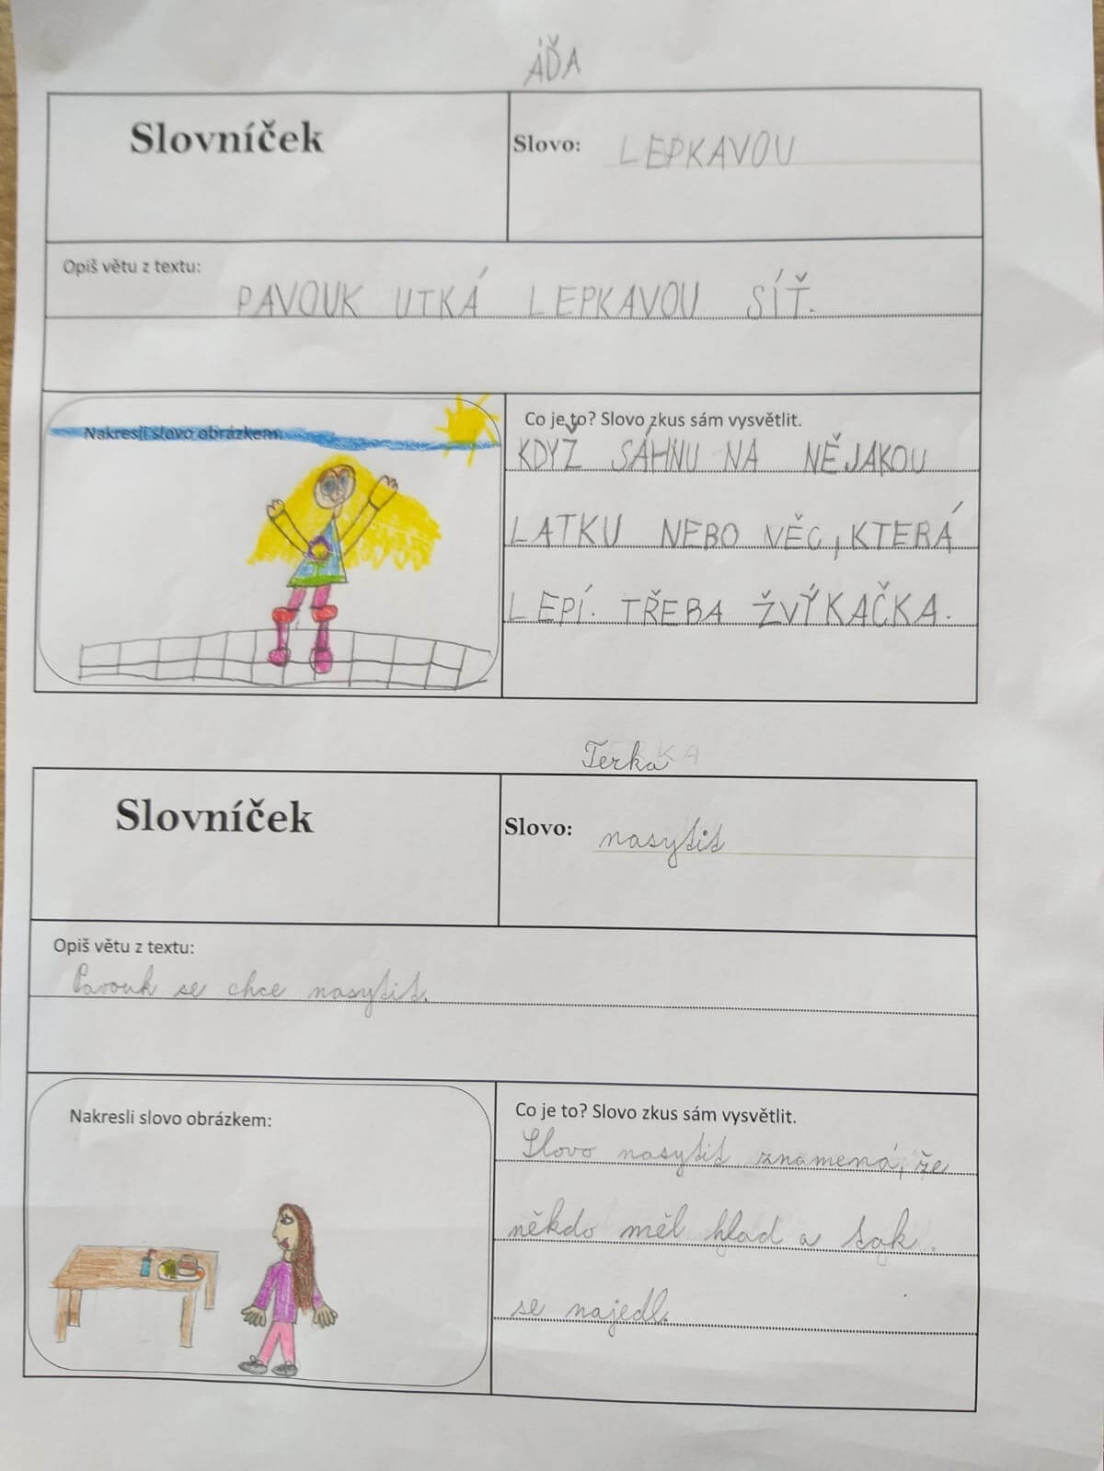 ÁĎA
Slovníček
Slovo: LEPKAVOU
Opiš větu z textu:
PAVOUK UTKÁ LEPKAVOU SÍŤ.
Nakresli slovo obrázkem:
Co je to? Slovo zkus sám vysvětlit.
KDYŽ SÁHNU NA NĚJAKOU
LATKU NEBO VĚC, KTERÁ
LEPÍ. TŘEBA ŽVÝKAČKA.
Terka
Slovníček
Slovo: nasytit
Opiš větu z textu:
Pavouk se chce nasytit.
Nakresli slovo obrázkem:
Co je to? Slovo zkus sám vysvětlit.
Slovo nasytit znamená, že
někdo měl hlad a tak
se najedl.